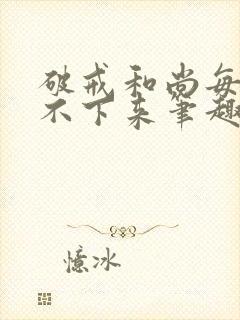 破戒和尚每
不下来笔趣
憶冰